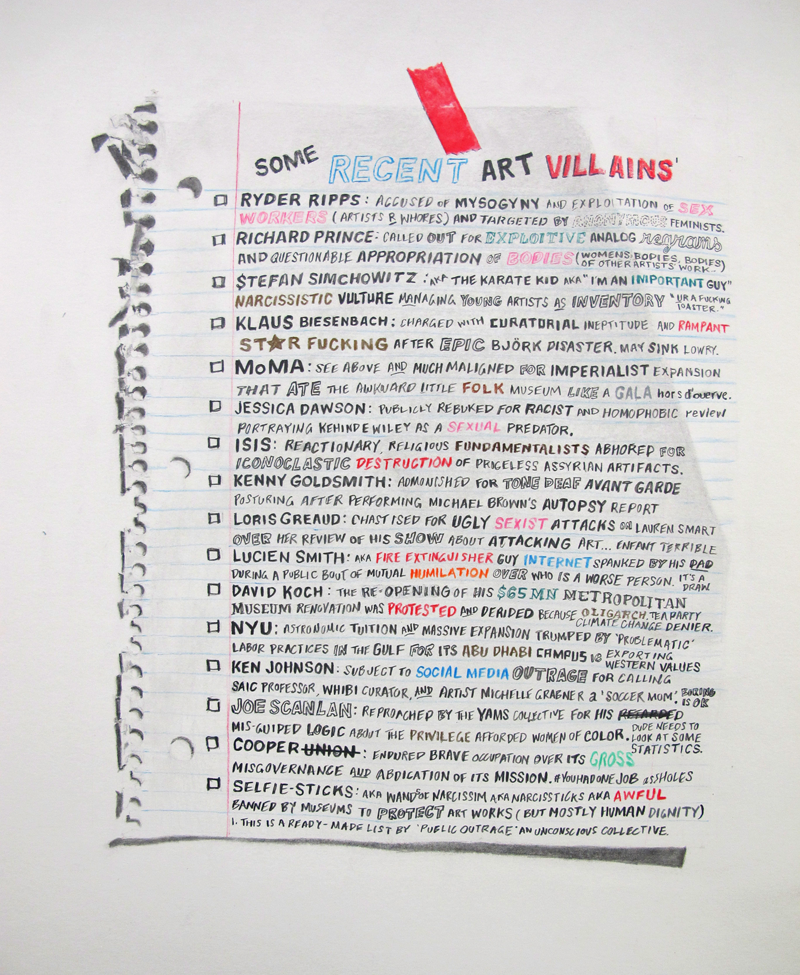 SOME RECENT ART VILLAINS'
RYDER RIPPS: ACCUSED OF MYSOGYNY AND EXPLOITATION OF SEX
WORKERS (ARTISTS & WHORES) AND TARGETED BY ANONYMOUS FEMINISTS.
RICHARD PRINCE: CALLED OUT FOR EXPLOITIVE ANALOG regrams
AND QUESTIONABLE APPROPRIATION OF BODIES (WOMENS BODIES, BODIES)
OF OTHER ARTISTS WORK...)
$TEFAN SIMCHOWITZ: AKA THE KARATE KID AKA "I'M AN IMPORTANT GUY"
NARCISSISTIC VULTURE MANAGING YOUNG ARTISTS AS INVENTORY "UR A FUCKING
TOASTER."
KLAUS BIESENBACH: CHARGED WITH CURATORIAL INEPTITUDE AND RAMPANT
ST★R FUCKING AFTER EPIC BJÖRK DISASTER. MAY SINK LOWRY.
MoMA: SEE ABOVE AND MUCH MALIGNED FOR IMPERIALIST EXPANSION
THAT ATE THE AWKWARD LITTLE FOLK MUSEUM LIKE A GALA hors d'ouerve.
JESSICA DAWSON: PUBLICLY REBUKED FOR RACIST AND HOMOPHOBIC review
PORTRAYING KEHINDE WILEY AS A SEXUAL PREDATOR.
ISIS: REACTIONARY, RELIGIOUS FUNDAMENTALISTS ABHORED FOR
ICONOCLASTIC DESTRUCTION OF PRICELESS ASSYRIAN ARTIFACTS.
KENNY GOLDSMITH: ADMONISHED FOR TONE DEAF AVANT GARDE
POSTURING AFTER PERFORMING MICHAEL BROWN'S AUTOPSY REPORT
LORIS GREAUD: CHASTISED FOR UGLY SEXIST ATTACKS ON LAUREN SMART
OVER HER REVIEW OF HIS SHOW ABOUT ATTACKING ART... ENFANT TERRIBLE
LUCIEN SMITH: AKA FIRE EXTINGUISHER GUY INTERNET SPANKED BY HIS DAD
DURING A PUBLIC BOUT OF MUTUAL HUMILATION OVER WHO IS A WORSE PERSON. IT'S A
DRAW
DAVID KOCH: THE RE-OPENING OF HIS $65 MN METROPOLITAN
MUSEUM RENOVATION WAS PROTESTED AND DERIDED BECAUSE OLIGARCH, TEA PARTY
CLIMATE CHANGE DENIER.
NYU: ASTRONOMIC TUITION AND MASSIVE EXPANSION TRUMPED BY 'PROBLEMATIC'
LABOR PRACTICES IN THE GULF FOR ITS ABU DHABI CAMPUS EXPORTING
WESTERN VALUES
KEN JOHNSON: SUBJECT TO SOCIAL MEDIA OUTRAGE FOR CALLING
SAIC PROFESSOR, WHIBI CURATOR, AND ARTIST MICHELLE GRABNER a 'SOCCER MOM'.
IS OK
JOE SCANLAN: REPROACHED BY THE YAMS COLLECTIVE FOR HIS RETARDED
MIS-GUIDED LOGIC ABOUT THE PRIVILEGE AFFORDED WOMEN OF COLOR. DUDE NEEDS TO
LOOK AT SOME
STATISTICS.
COOPER UNION: ENDURED BRAVE OCCUPATION OVER ITS GROSS
MISGOVERNANCE AND ABDICATION OF ITS MISSION. #YOUHADONEJOB assHOLES
SELFIE-STICKS: AKA WANDS OF NARCISSIM AKA NARCISSTICKS AKA AWFUL
BANNED BY MUSEUMS TO PROTECT ART WORKS (BUT MOSTLY HUMAN DIGNITY)
1. THIS IS A READY-MADE LIST BY 'PUBLIC OUTRAGE' AN UNCONSCIOUS COLLECTIVE.